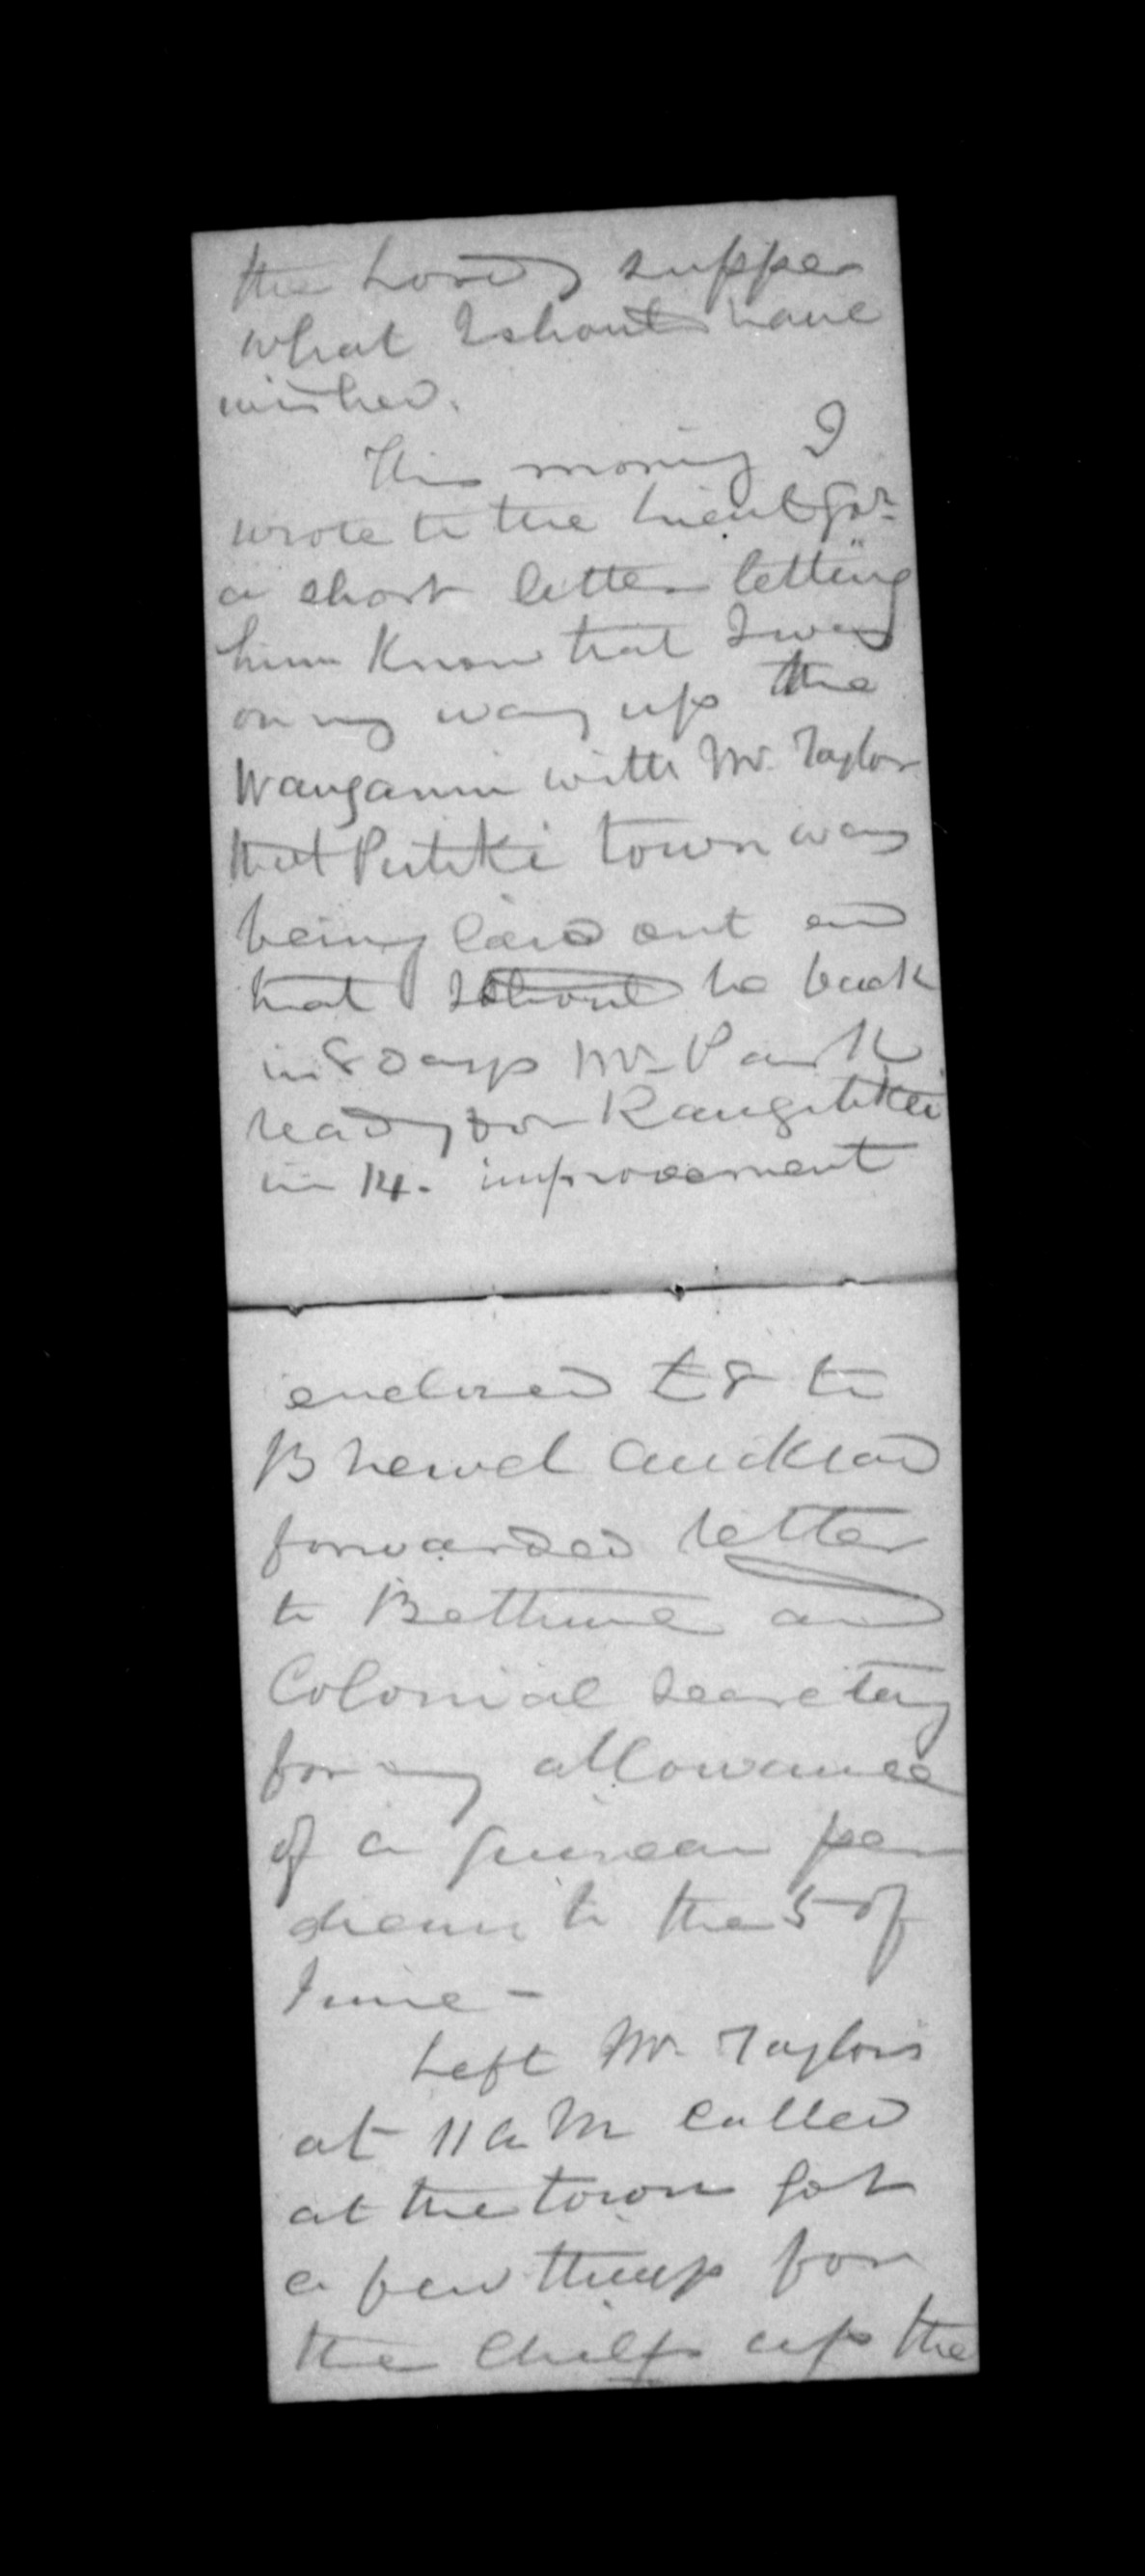 the Lords supper
what I should have
wished.
This morning I
wrote to the Lieut Govr
a short letter letting
him Know that I was
on my way up the
Wanganui with Mr. Taylor
that Putiki town was
being laid out and
that I should be back
in 8 Days Mr Park
ready for Rangitikei
in 14. improvement
enclosed £8 to
B Auckland
forwarded letter
to Bethune and
Colonial Secretary
for my allowance
of a guinea per
diem to the 5 of
June -
Left Mr. Taylors
at 11 a M called
at the town got
a few things for
the Chiefs up the